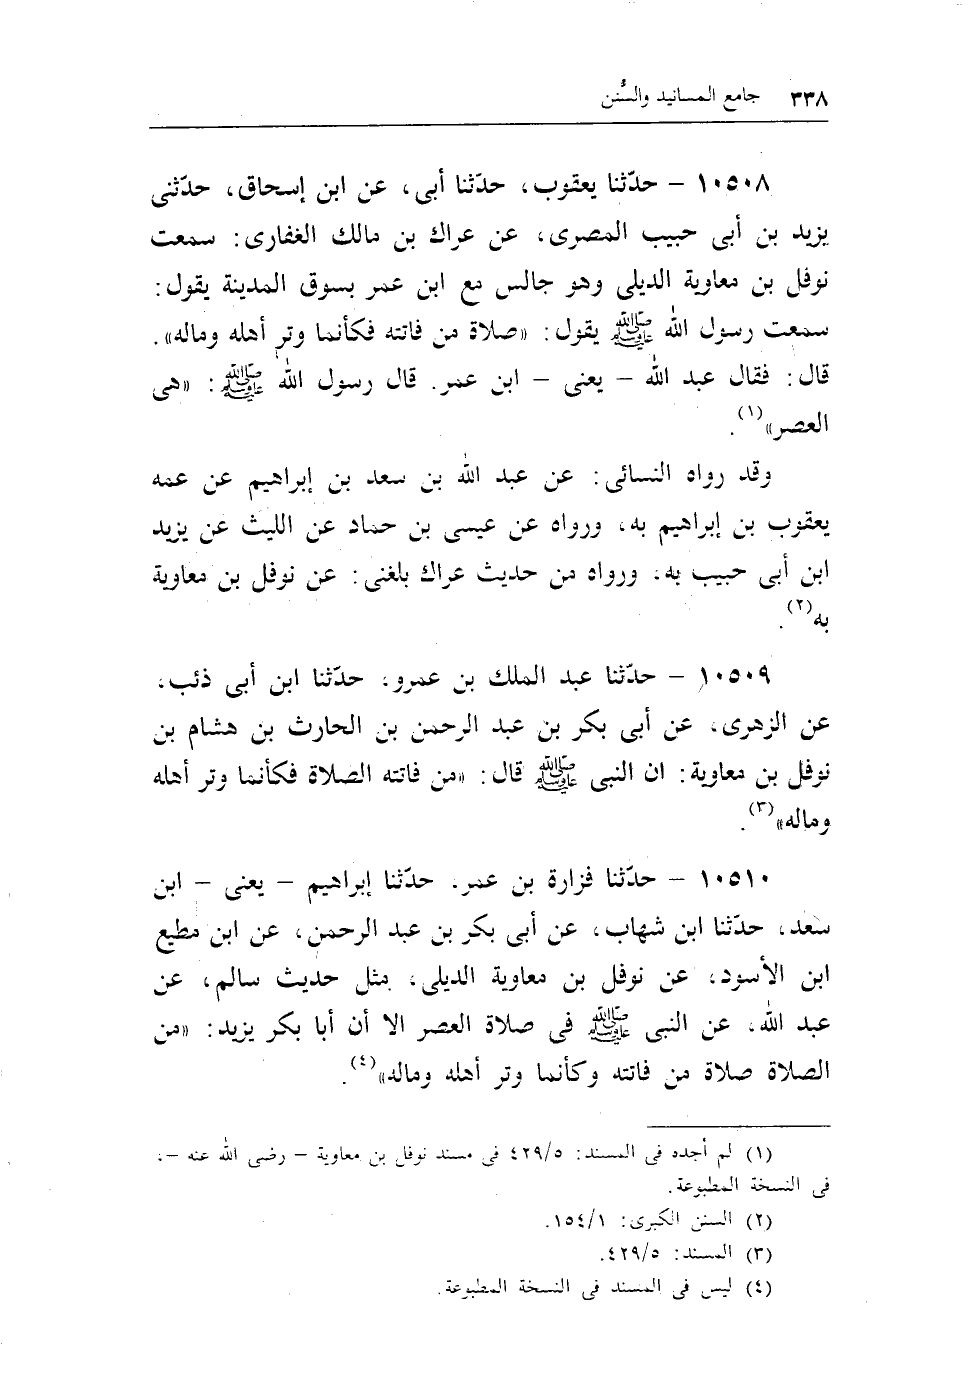 ٣٣٨ جامع المسانيد والسُّنن
١٠٥٠٨ – حدّثنا يعقوب، حدّثنا أبى، عن ابن إسحاق، حدّثنى
يزيد بن أبى حبيب المصرى، عن عراك بن مالك الغفارى: سمعت
نوفل بن معاوية الديلى وهو جالس مع ابن عمر بسوق المدينة يقول:
سمعت رسول الله ﷺ يقول: «صلاة من فاتته فكأنما وتر أهله وماله».
قال: فقال عبد الله – يعنى – ابن عمر. قال رسول الله ﷺ: «هى
العصر»(١).
وقد رواه النسائى: عن عبد الله بن سعد بن إبراهيم عن عمه
يعقوب بن إبراهيم به، ورواه عن عيسى بن حماد عن الليث عن يزيد
ابن أبى حبيب به، ورواه من حديث عراك بلغنى: عن نوفل بن معاوية
به(٢).
١٠٥٠٩ – حدّثنا عبد الملك بن عمرو، حدّثنا ابن أبى ذئب،
عن الزهرى، عن أبى بكر بن عبد الرحمن بن الحارث بن هشام بن
نوفل بن معاوية: ان النبى ﷺ قال: «من فاتته الصلاة فكأنما وتر أهله
وماله»(٣).
١٠٥١٠ – حدّثنا فزارة بن عمر. حدّثنا إبراهيم – يعنى – ابن
سعد، حدّثنا ابن شهاب، عن أبى بكر بن عبد الرحمن، عن ابن مطيع
ابن الأسود، عن نوفل بن معاوية الديلى، مثل حديث سالم، عن
عبد الله، عن النبى ﷺ فى صلاة العصر الا أن أبا بكر يزيد: «من
الصلاة صلاة من فاتته وكأنما وتر أهله وماله»(٤).
(١) لم أجده فى المسند: ٤٢٩/٥ فى مسند نوفل بن معاوية – رضى الله عنه –،
فى النسخة المطبوعة.
(٢) السنن الكبرى: ١٥٤/١.
(٣) المسند: ٤٢٩/٥.
(٤) ليس فى المسند فى النسخة المطبوعة.